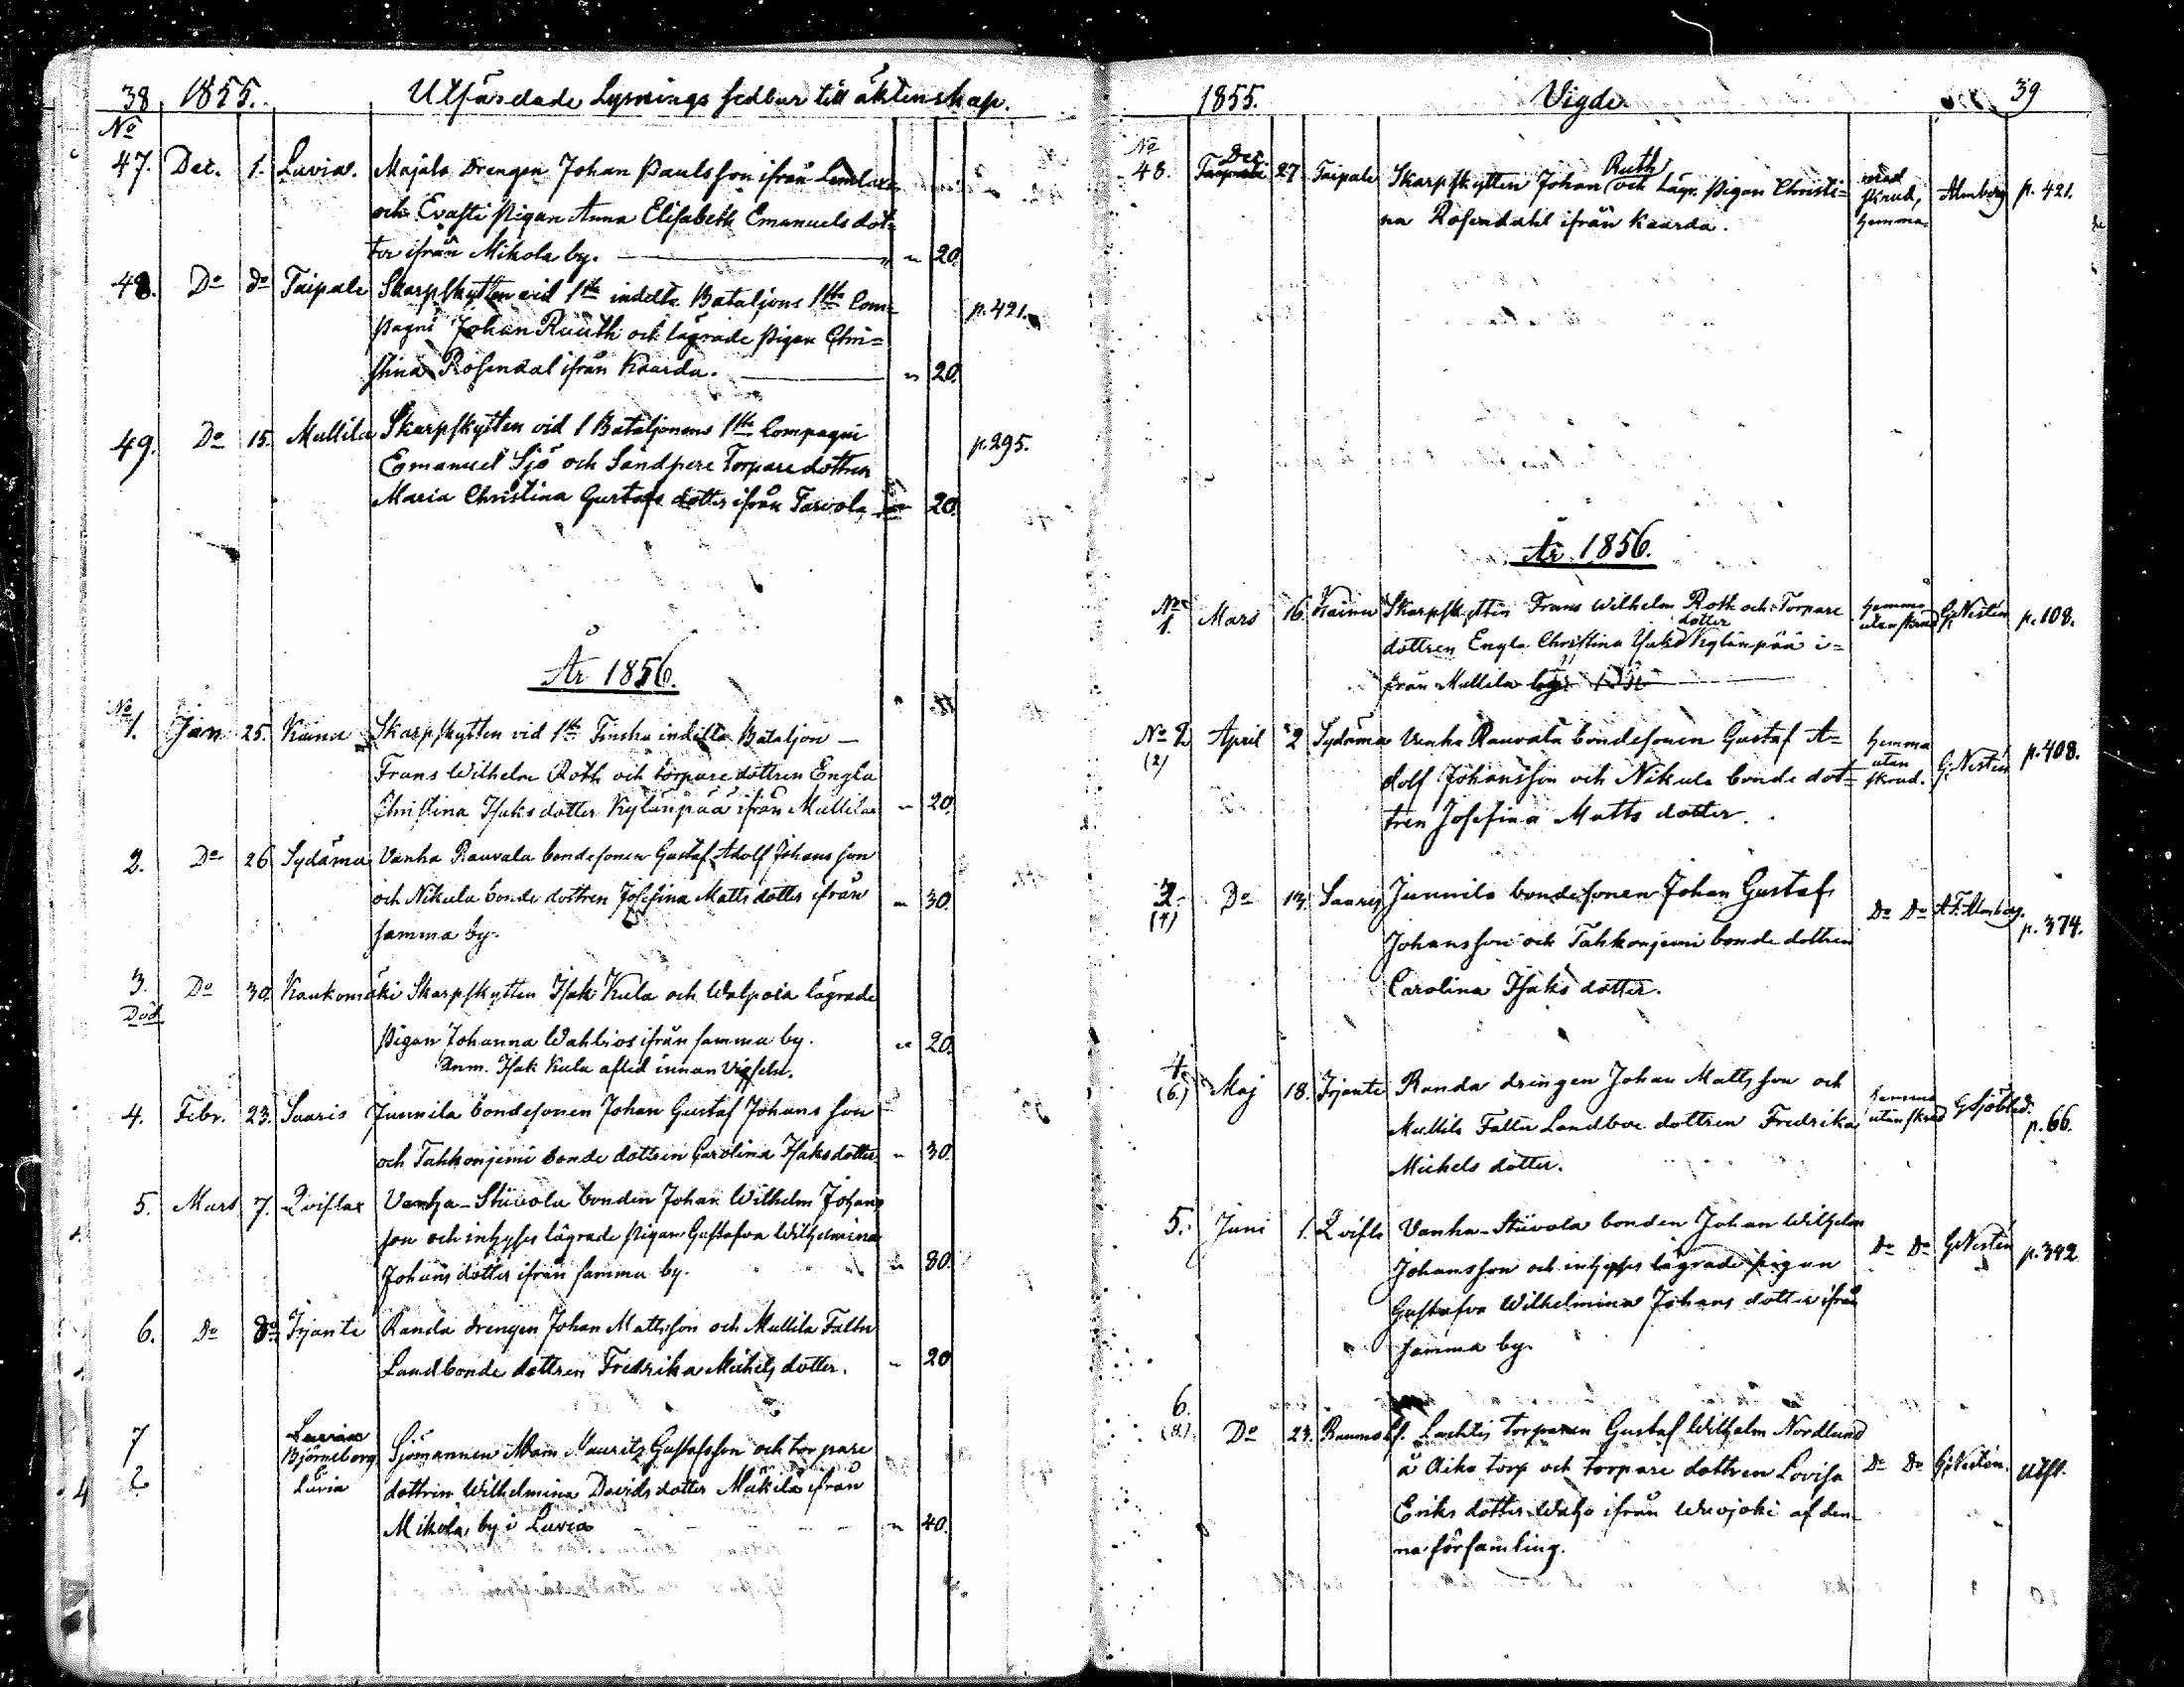 38 1855. Utfärdade Lysnings sedlar till äktenskap.
No
47. Dec. 1. Luvia. Majala Drengen Johan Paulsson ifrån Lemlax
och Evasti Pigan Anna Elisabeth Emanuels dot=
ter ifrån Mikola by. " 20.
48. Do do Taipale Skarpskytten vid 1sta indelta Bataljons 1sta Com=
pagni Johan Ruuth och lägrade Pigan Chri= p. 421.
stina Rosendal ifrån Kaarda. " 20.
49. Do 15. Mullila Skarpskytten vid 1 Bataljonens 1sta Compagni
Emanuel Sjö och Sandpere Torpare dottren p. 295.
Maria Christina Gustafs dotter ifrån Tarvola 20.
År 1856.
No
1. Jan 25. Kainu Skarpskytten vid 1sta Finska indelta Bataljon —
Frans Wilhelm Roth och torpare dottren Engla
Christina Isaks dotter Kylänpää ifrån Mullila " 20.
2. Do 26 Sydänmaa Vanha Rauvala bondesonen Gustaf Adolf Johansson
och Nikula bonde dottren Josefina Matts dotter ifrån " 30.
samma by.
3. Do 30. Kaukomäki Skarpskytten Isak Kula och Walpola lägrade
Död
Pigan Johanna Wahlroos ifrån samma by. " 20.
Anm. Isak Kula afled innan Vigseln.
4. Febr. 23. Saaris Junnila bondesonen Johan Gustaf Johansson
och Tahkonjemi bonde dottren Carolina Isaksdotter " 30.
5. Mars 7. Qvislax Vanha-Stüvola bonden Johan Wilhelm Johans
son och inhyses lägrade Pigan Gustafva Wilhelmina
Johans dotter ifrån samma by. " 80.
6. Do 8. Irjante Randa drengen Johan Mattsson och Mullila Fallu
Landbonde dottren Fredrika Michels dotter. " 20
7 Björneborg Sjömannen Adam Mauritz Gustafsson och torpare
Luvia dottren Wilhelmina Davids dotter Mäkilä ifrån
Mikola by i Luvia " 40.
1855. Vigde 39
No
48. Dec 27 Taipale Skarpskytten Johan Ruth och Lägr. Pigan Christi= med skrud, hemma Almberg p. 421.
na Rosendahl ifrån Kaarda.
År 1856.
No
1. Mars 16. Kainu Skarpskytten Frans Wilhelm Roth och Torpare hemma utan skrud G. Nestén p. 108.
dottren Engla Christina Isaks dotter Kylänpää i=
från Mullila
No 2 (2) April 2 Sydänmaa Vanha Rauvala bondesonen Gustaf A= hemma utan skrud. G. Nestén p. 408.
dolf Johansson och Nikula bonde dot=
tren Josefina Matts dotter.
3. (4) Do 13. Saaris Junnila bondesonen Johan Gustaf
Johansson och Tahkonjemi bonde dottren Do Do A. F. Almberg. p. 374.
Carolina Isaks dotter.
4. (6.) Maj 18. Irjante Randa drengen Johan Mattsson och
Mullila Fallu Landboe dottren Fredrika hemma utan skrud G. Sjöblad. p. 66.
Michels dotter.
5. Juni 1. Qvisla Vanha-Stüvola bonden Johan Wilhelm
Johansson och inhyses lägrade pigan Do Do G. Nestén p. 342
Gustafva Wilhelmina Johans dotter ifrån
samma by.
6. (8.) Do 23. Raumo Lf. Lachtis torparen Gustaf Wilhelm Nordlund
å Aiko torp och torpare dottren Lovisa Do Do G. Nestén. Utfl.
Eriks dotter Waho ifrån Wuojoki af den=
na församling.